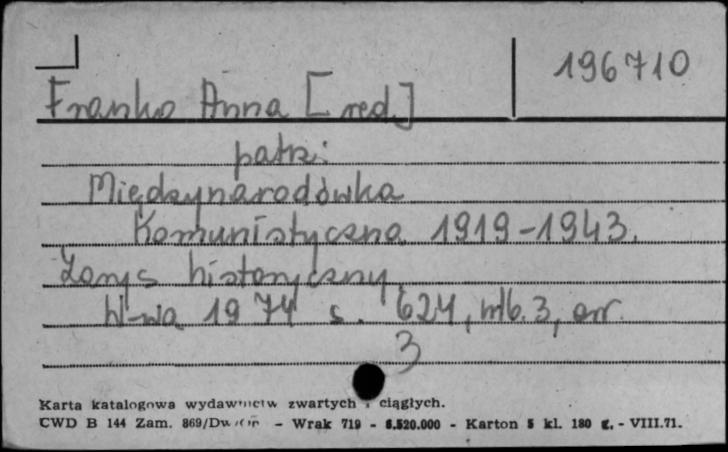 196710
Franko Anna [red.]
patrz:
Międzynarodówka
Komunistyczna 1919-1943.
Zarys historyczny.
W-wa 1974 s. 624, nlb. 3, err.
3
Karta katalogowa wydawnictw zwartych i ciągłych.
CWD B 144 Zam. 869/Dw - Wrak 719 - 6.520.000 - Karton 5 kl. 180 g. - VIII.71.